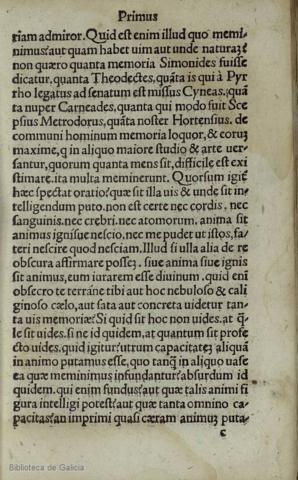 Primus
riam admiror. Quid est enim illud quo memi-
nimus? aut quam habet uim aut unde naturā?
non quæro quanta memoria Simonides fuisse
dicatur, quanta Theodectes, quāta is qui à Pyr
rho legatus ad senatum est missus Cyneas, quā
ta nuper Carneades, quanta qui modo fuit Sce
psius Metrodorus, quāta noster Hortensius. de
communi hominum memoria loquor, & eorum
maxime, q in aliquo maiore studio & arte uer-
santur, quorum quanta mens sit, difficile est exi
stimare. ita multa meminerunt. Quorsum igit
hæc spectat oratio? quæ sit illa uis & unde sit in-
telligendum puto. non est certe nec cordis, nec
sanguinis, nec crebri, nec atomorum, anima sit
animus ignisue nescio, nec me pudet ut istos, fa-
teri nescire quod nesciam. Illud si ulla alia de re
obscura affirmare possem, siue anima siue ignis
sit animus, eum iurarem esse diuinum. quid eni
obsecro te terrāne tibi aut hoc nebuloso & cali
ginoso cælo, aut sata aut concreta uidetur tan-
ta uis memoriæ? Si quid sit hoc non uides. at q̃
le sit uides. si ne id quidem, at quantum sit profe
cto uides. quid igitur? utrum capacitatē aliquā
in animo putamus esse, quo tanq̃ in aliquo uase
ea quæ meminimus infundantur? absurdum id
quidem. qui enim fundus? aut quæ talis animi fi
gura intelligi potest? aut quæ tanta omnino ca-
pacitas? an imprimi quasi cæram animum puta-
c
Biblioteca de Galicia